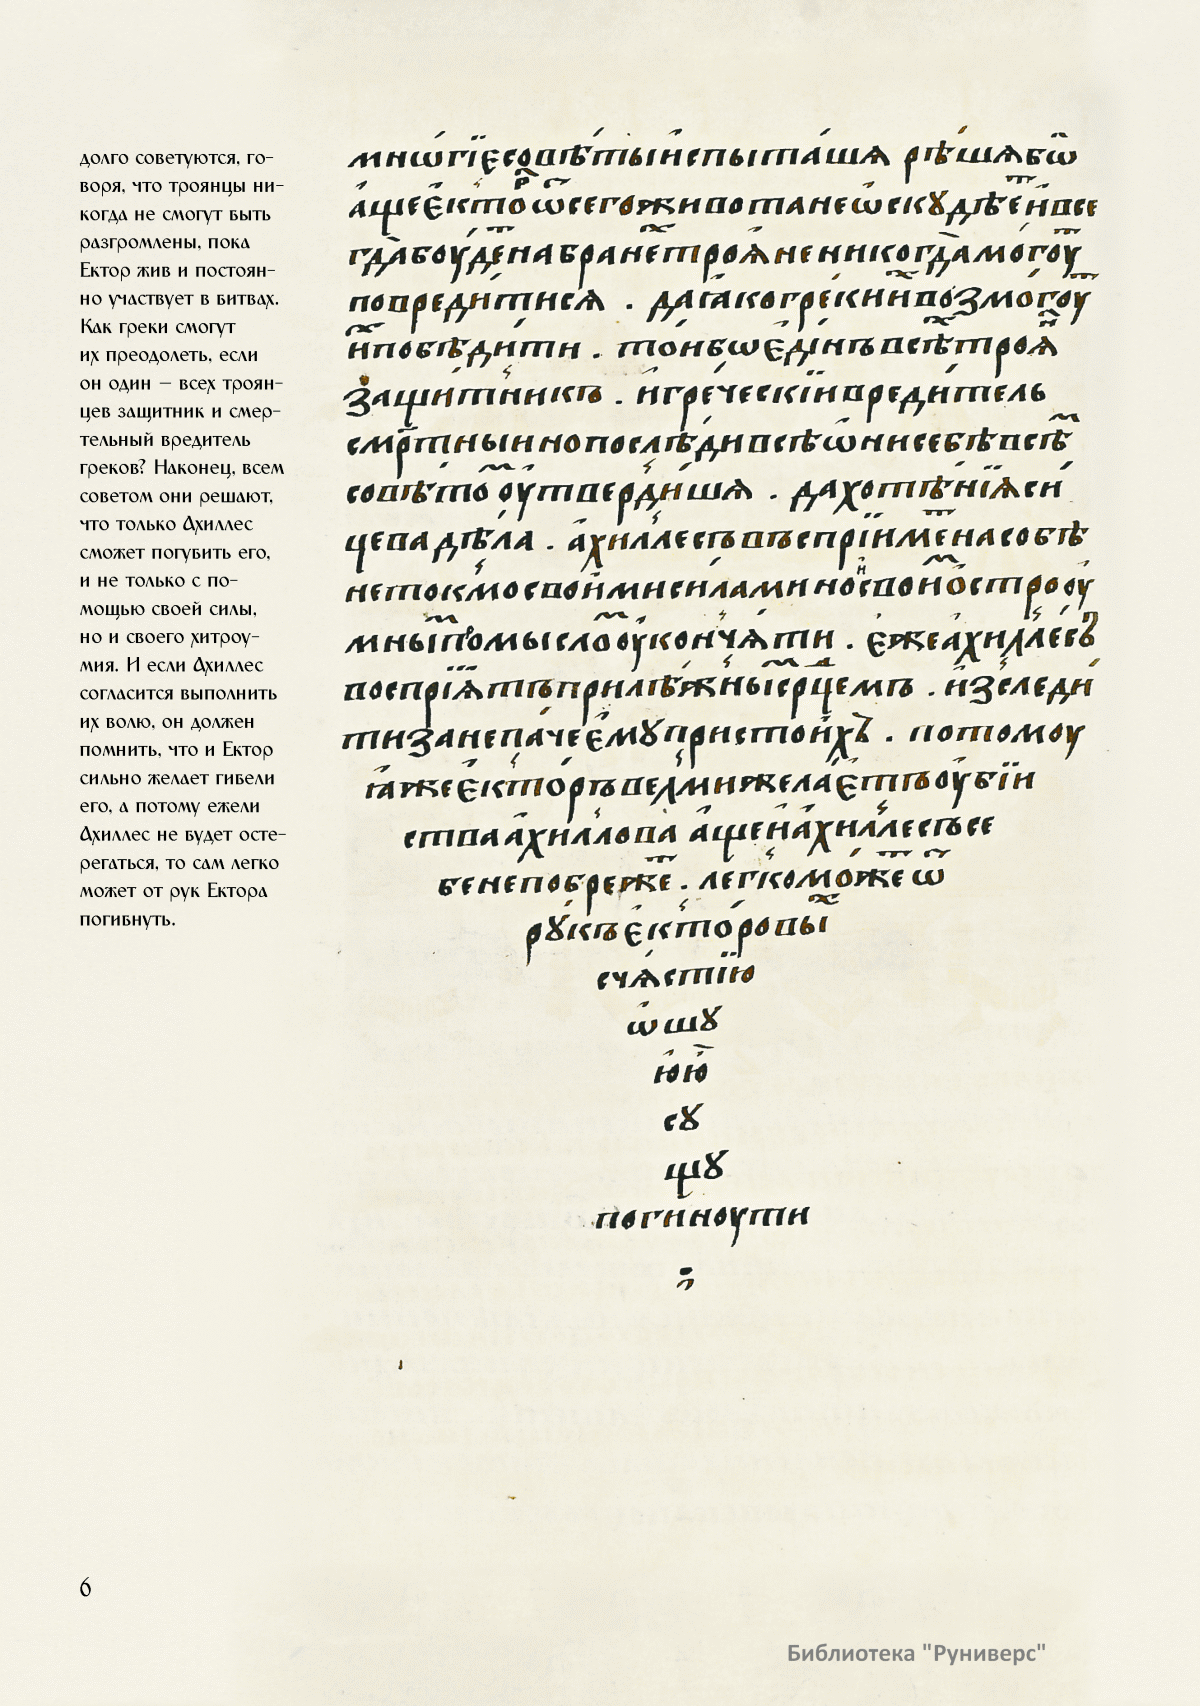 долго советуются, го-
воря, что троянцы ни-
когда не смогут быть
разгромлены, пока
Ектор жив и постоян-
но участвует в битвах.
Как греки смогут
их преодолеть, если
он один – всех троян-
цев защитник и смер-
тельный вредитель
греков? Наконец, всем
советом они решают,
что только Ахиллес
сможет погубить его,
и не только с по-
мощью своей силы,
но и своего хитроу-
мия. И если Ахиллес
согласится выполнить
их волю, он должен
помнить, что и Ектор
сильно желает гибели
его, а потому ежели
Ахиллес не будет осте-
регаться, то сам легко
может от рук Ектора
погибнуть.
мнѡгїєсовѣтыиспыташѧ рѣшѧбѡ
ащеєктоⷬѿсегоживотанеѡскꙋдѣеⷮивсе
гдабоудеⷮнабранеⷯтроѧненикогдамогоуⷮ
повредитисѧ . дагакогрекиивозмогоуⷮ
иⷯпобѣдити . тоибѡєдинъвсѣⷯтроѧⷩ
защитникъ . игреческїивредитель
смⷬ҇тныинопослѣдивсѣѡнисебѣвсѣⷨ
совѣтоⷨоутвердишѧ . дахотѣнїѧси
цевадѣла . ахиллесъвъспрїимеⷮнасобѣ
нетокмосвоимисиламиноⷩсвоиⷨострооу
мныⷨпромыслоⷨоукончѧти . єжеахиллесъ
воспрїѧтъприлѣжныⷨсрⷣцемъ . изследи
тизанепачеємꙋпристоихъ . потомоу
ꙗжеєкторъвелмижелаєтъоубїи
стваахиллова ащеиахиллесъсе
бенепобрежеⷮ . легкоможеⷮѿ
рꙋкъєкторовыⷯ
счѧстїю
ѡшꙋ
юю
сꙋ
щꙋ
погиноути
6
Библиотека "Руниверс"